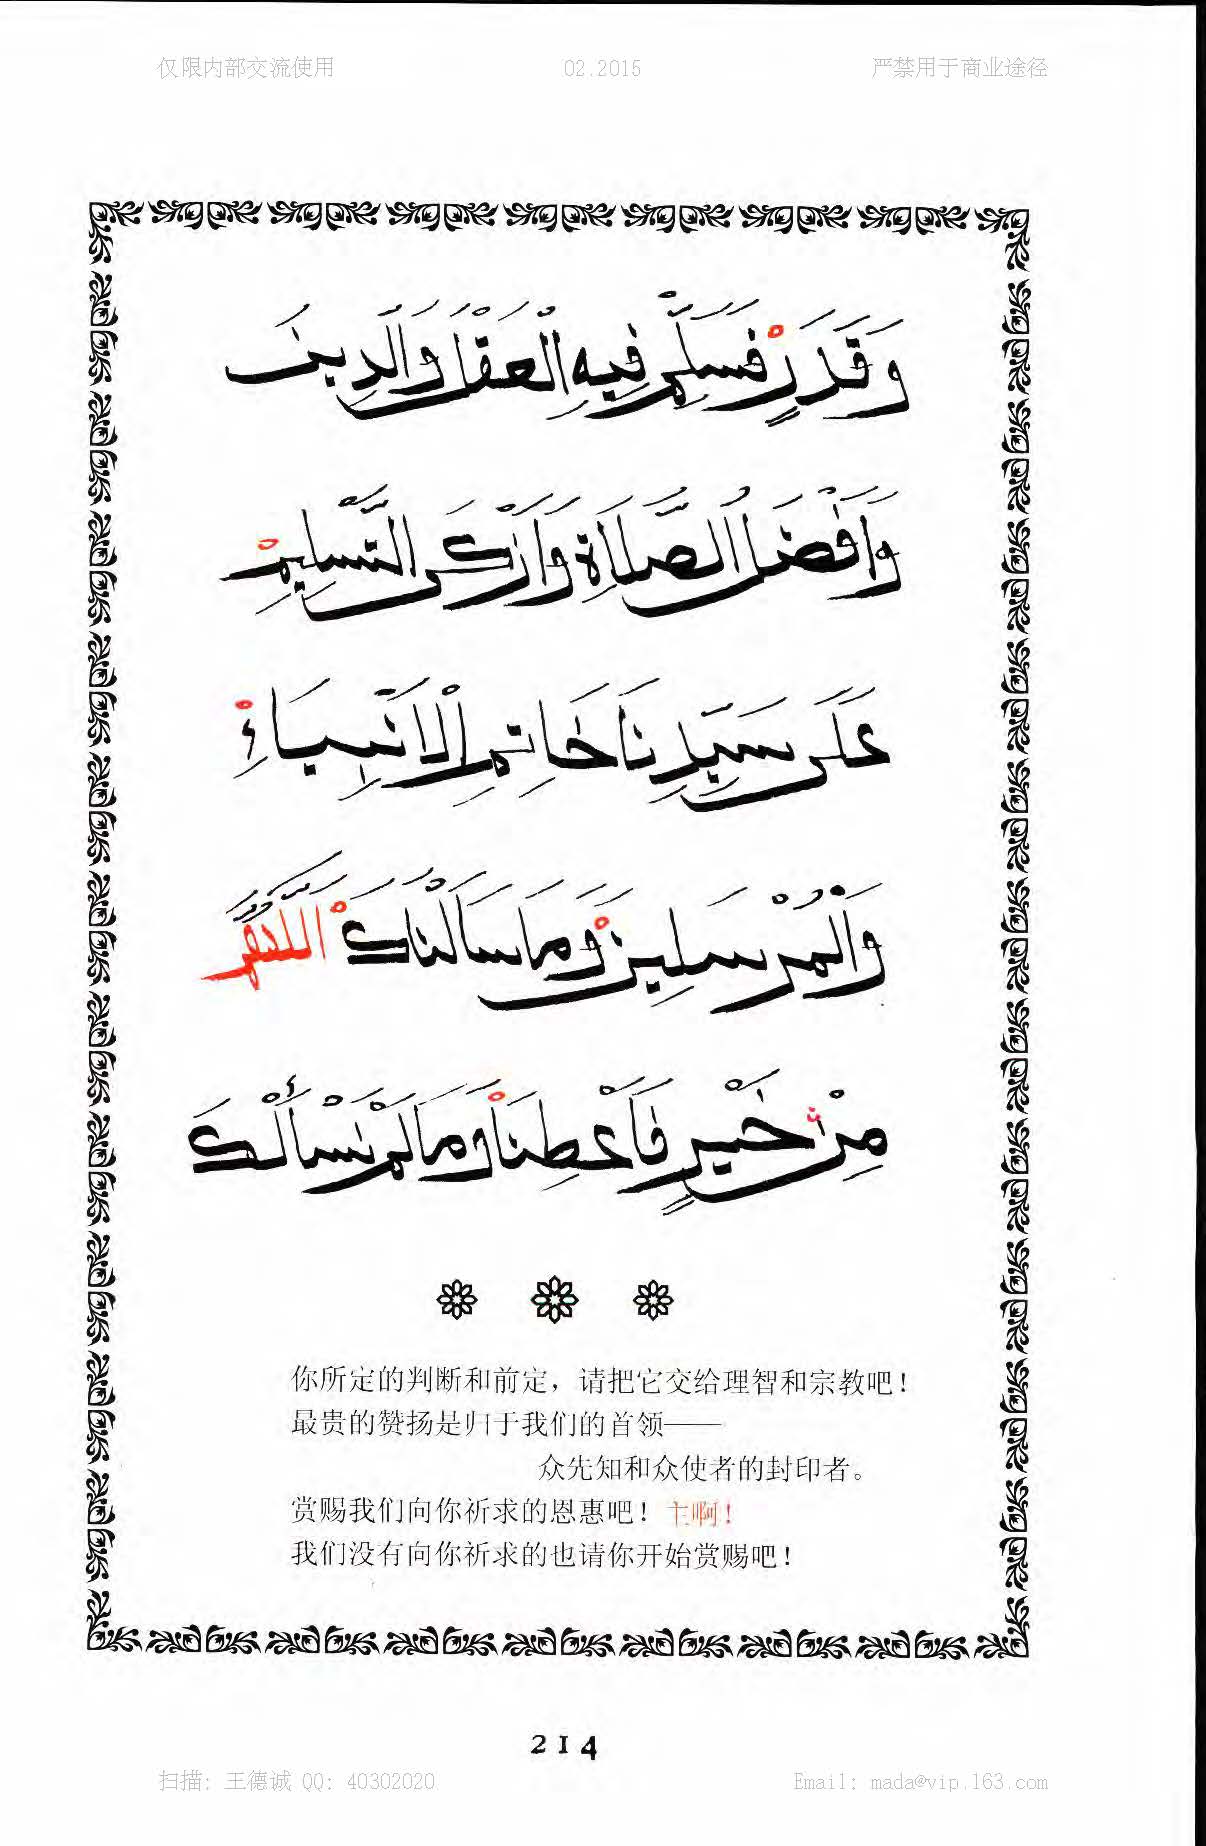 仅限内部交流使用 02.2015 严禁用于商业途径
وَقَدَرٍ فَسَلِّمْ فِيهِ الْعَقْلَ وَالدِّينَ
وَاَفْضَلُ الصَّلَاةِ وَاَزْكَى التَّسْلِيمِ
عَلَى سَيِّدِنَا خَاتِمِ الْاَنْبِيَاءِ
وَالْمُرْسَلِينَ وَمَا سَاَلْنَاكَ اَللَّهُمَّ
مِنْ خَيْرٍ فَاَعْطِنَا وَمَا لَمْ نَسْأَلْكَ
你所定的判断和前定，请把它交给理智和宗教吧！
最贵的赞扬是归于我们的首领——
众先知和众使者的封印者。
赏赐我们向你祈求的恩惠吧！主啊！
我们没有向你祈求的也请你开始赏赐吧！
214
扫描: 王德诚 QQ: 40302020 Email: mada@vip.163.com